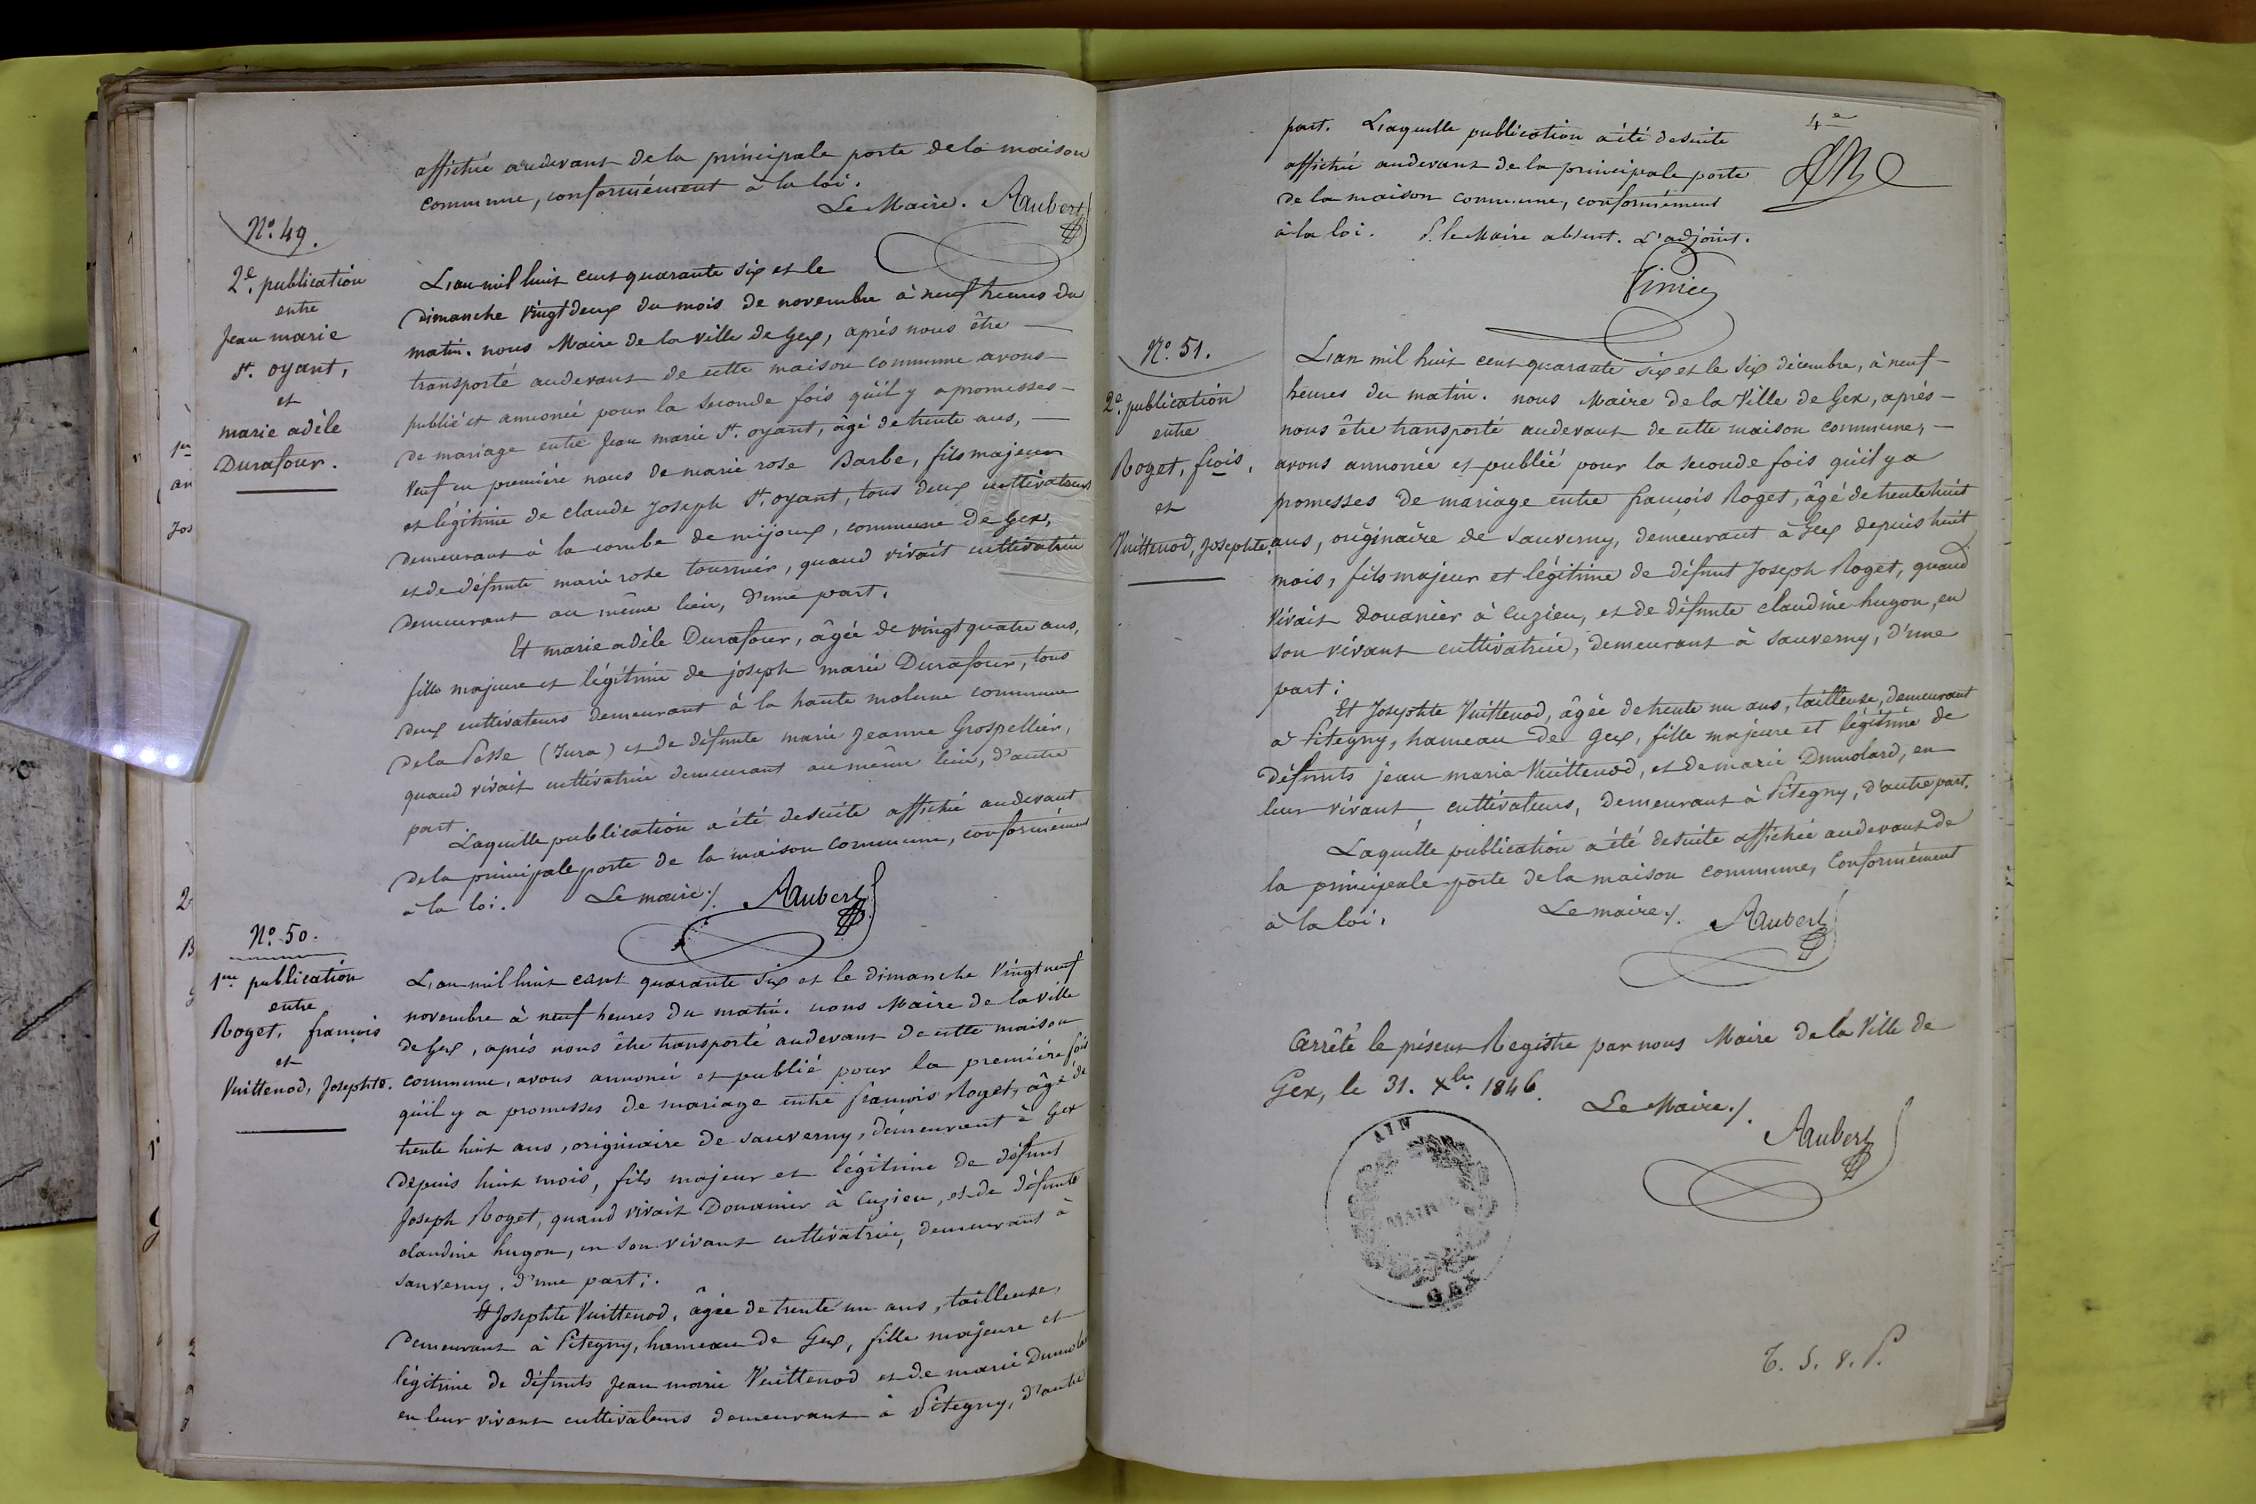 affichée audevant de la principale porte de la maison
commune, conformément à la loi.
Le Maire. Aubert
N.o 49.
2.e publication
entre
Jean marie
St. oyant,
et
marie adèle
Durafour.
L'an mil huit cent quarante six et le
dimanche vingt deux du mois de novembre à neuf heures du
matin. nous Maire de la ville de Gex, après nous être
transporté audevant de cette maison commune avons
publié et annoncé pour la seconde fois qu'il y a promesses
de mariage entre Jean marie St. oyant, âgé de trente ans,
veuf en première noces de marie rose Barbe, fils majeur
et légitime de claude Joseph St. oyant, tous deux cultivateurs
demeurant à la combe de mijoux, commune de Gex,
et de défunte marie rose tournier, quand vivait cultivatrice
demeurant au même lieu, d'une part.
Et marie adèle Durafour, âgée de vingt quatre ans,
fille majeure et légitime de joseph marie Durafour, tous
deux cultivateurs demeurant à la haute molune commune
de la Pesse (Jura) et de défunte marie jeanne Grospellier,
quand vivait cultivatrice demeurant au même lieu, d'autre
part.
Laquelle publication a été desuite affiché audevant
de la principale porte de la maison commune, conformément
à la loi. Le maire /. Aubert
N.o 50.
1.re publication
entre
Roget, françois
et
Vuittenod, Josephte.
L'an mil huit cent quarante six et le dimanche vingt neuf
novembre à neuf heures du matin. nous Maire de la ville
de Gex, après nous être transporté audevant de cette maison
commune, avons annoncé et publié pour la première fois
qu'il y a promesses de mariage entre françois Roget, âgé de
trente huit ans, originaire de sauverny, demeurant à Gex
depuis huit mois, fils majeur et légitime de défunt
Joseph Roget, quand vivait Douanier à Cuzieu, et de défunte
claudine hugon, en son vivant cultivatrice, demeurant à
sauverny, d'une part;.
Et Josephte Vuittenod, âgée de trente un ans, tailleuse,
demeurant à Pitegny, hameau de Gex, fille majeure et
légitime de défunts Jean marie Vuittenod et de marie Dumolard
en leur vivant cultivateurs demeurant à Pitegny, d'autre
part. Laquelle publication a été desuite
affichée audevant de la principale porte
de la maison commune, conformément
à la loi. P. le Maire absent. L'adjoint.
4e
N.o 51.
2.e publication
entre
Roget, frois,
et
Vuittenod, Josephte.
L'an mil huit cent quarante six et le six décembre, à neuf
heures du matin. nous Maire de la Ville de Gex, après
nous être transporté audevant de cette maison commune,
avons annoncé et publié pour la seconde fois qu'il y a
promesses de mariage entre françois Roget, âgé de trente huit
ans, originaire de Sauverny, demeurant à Gex depuis huit
mois, fils majeur et légitime de défunt Joseph Roget, quand
vivait douanier à Cuzieu, et de défunte claudine hugon, en
son vivant cultivatrice, demeurant à sauverny, d'une
part;
Et Josephte Vuittenod, âgée de trente un ans, tailleuse, demeurant
à Pitegny, hameau de Gex, fille majeure et légitime de
défunts jean marie Vuittenod, et de marie Dumolard, en
leur vivant, cultivateurs, demeurant à Pitegny, d'autre part.
Laquelle publication a été desuite affichée audevant de
la principale porte de la maison commune, Conformément
à la loi. Le maire /. Aubert
Arrêté le présent Registre par nous Maire de la Ville de
Gex, le 31. Xbre 1846.
Le Maire /. Aubert
AIN
MAIRIE
GEX
T. S. V. P.